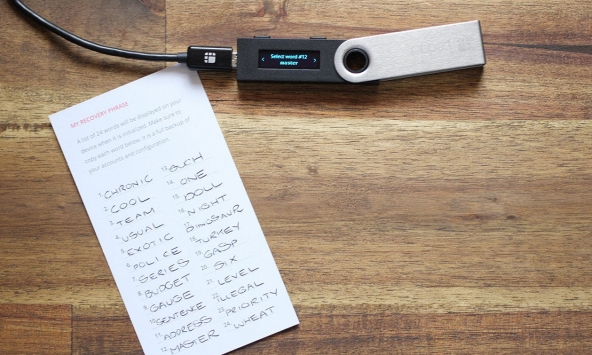 Select word #12
master
MY RECOVERY PHRASE
A list of 24 words will be displayed on your
device when it is initialized. Make sure to
copy each word below. It is a full backup of
your accounts and configuration.
1. CHRONIC
2. COOL
3. TEAM
4. USUAL
5. EXOTIC
6. POLICE
7. SERIES
8. BUDGET
9. GAUGE
10. SENTENCE
11. ADDRESS
12. MASTER
13. SUCH
14. ONE
15. DOLL
16. NIGHT
17. DINOSAUR
18. TURKEY
19. GASP
20. SIX
21. LEVEL
22. ILLEGAL
23. PRIORITY
24. WHEAT